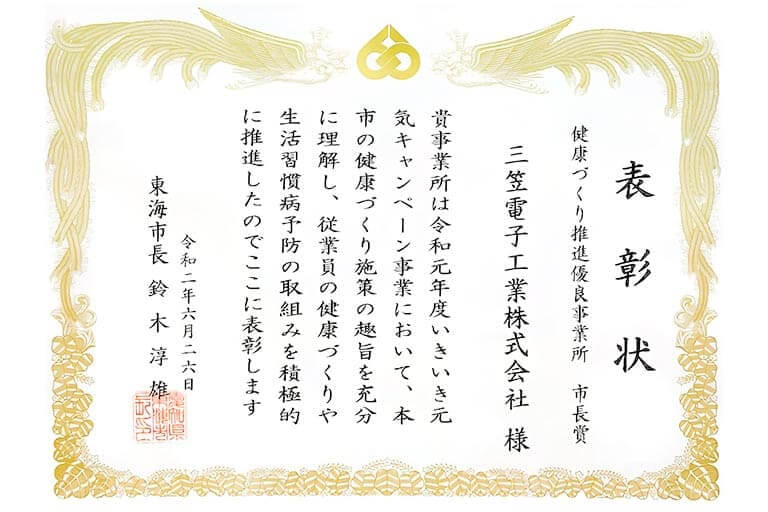 表彰状
健康づくり推進優良事業所　市長賞
三笠電子工業株式会社　様
貴事業所は令和元年度いきいき元
気キャンペーン事業において、本
市の健康づくり施策の趣旨を充分
に理解し、従業員の健康づくりや
生活習慣病予防の取組みを積極的
に推進したのでここに表彰します
令和二年六月二六日
東海市長　鈴木淳雄